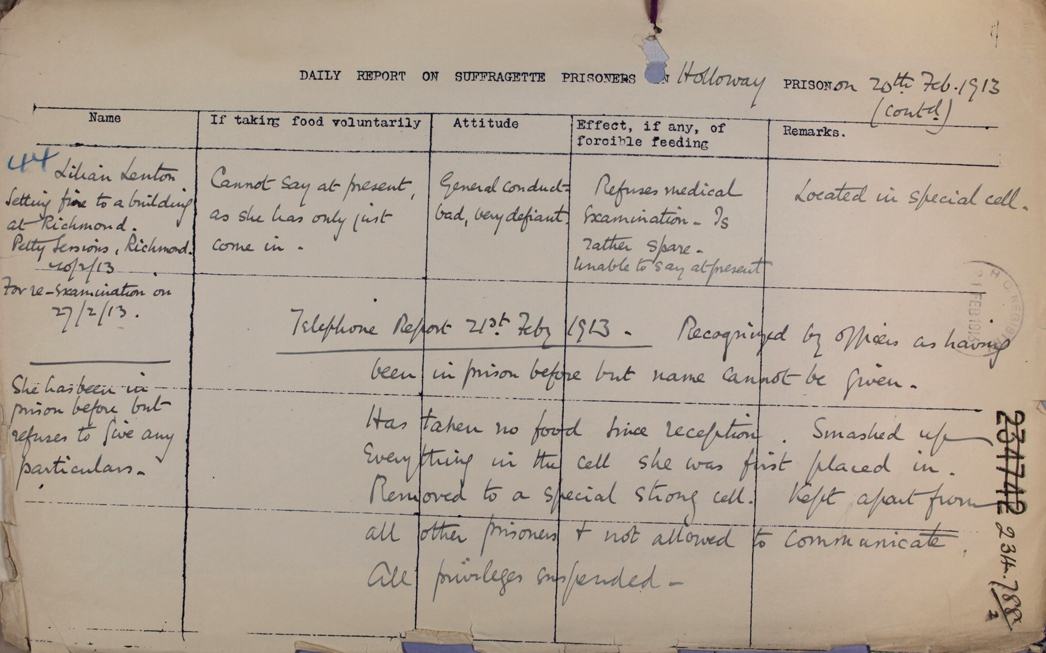 DAILY REPORT ON SUFFRAGETTE PRISONERS IN Holloway PRISON on 20th Feb. 1913
(contd)
Name
If taking food voluntarily
Attitude
Effect, if any, of
forcible feeding
Remarks.
44 Lilian Lenton
Setting fire to a building
at Richmond.
Petty Sessions, Richmond.
20/2/13
For re-examination on
27/2/13.
She has been in
prison before but
refuses to give any
particulars.
Cannot say at present,
as she has only just
come in.
General conduct
bad, very defiant.
Refuses medical
Examination - Is
rather spare.
Unable to say at present
Located in special cell.
Telephone Report 21st Feby 1913. Recognized by officers as having
been in prison before but name cannot be given.
Has taken no food since reception. Smashed up
Everything in the cell she was first placed in.
Removed to a special strong cell. Kept apart from
all other prisoners + not allowed to communicate.
All privileges suspended -
234742
234.788/2